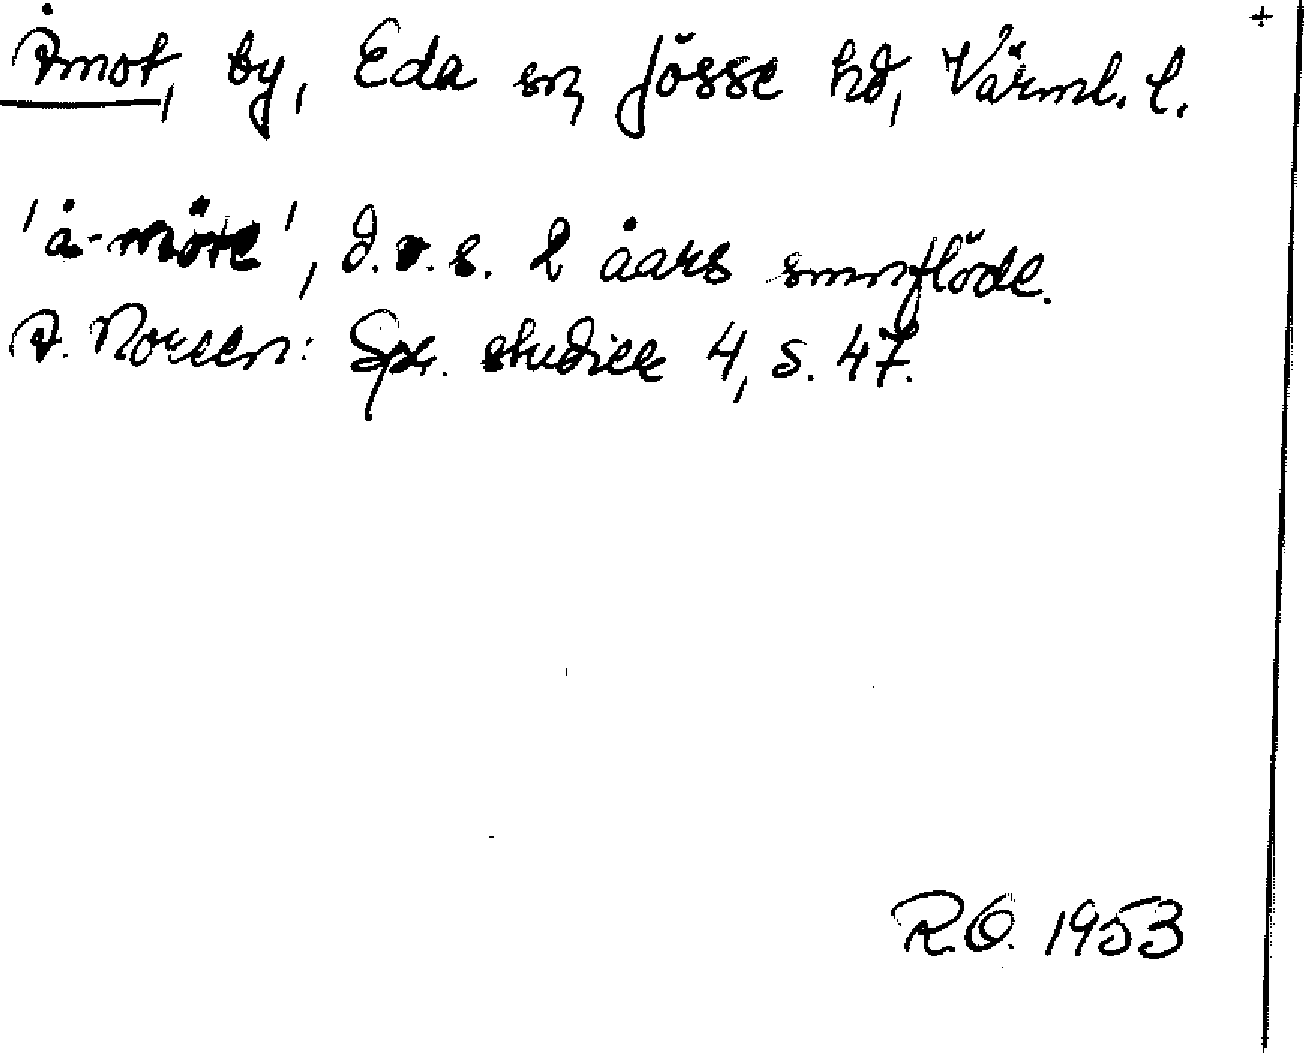 +
Åmot, by, Eda sn, Jösse hd, Värml. l.
'å-möte', d.v.s. 2 åars smnflöde.
A. Noreen: Spr. studier 4, s. 47.
R.O. 1953